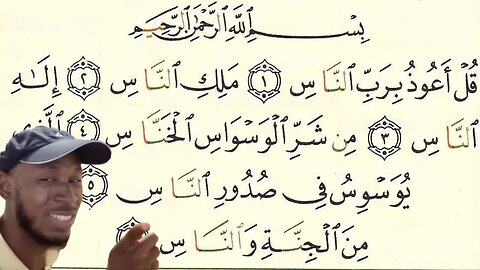 بِسْمِ ٱللَّهِ ٱلرَّحْمَٰنِ ٱلرَّحِيمِ
قُلْ أَعُوذُ بِرَبِّ ٱلنَّاسِ ١ مَلِكِ ٱلنَّاسِ ٢ إِلَٰهِ
ٱلنَّاسِ ٣ مِن شَرِّ ٱلْوَسْوَاسِ ٱلْخَنَّاسِ ٤
يُوَسْوِسُ فِي صُدُورِ ٱلنَّاسِ ٥
مِنَ ٱلْجِنَّةِ وَٱلنَّاسِ